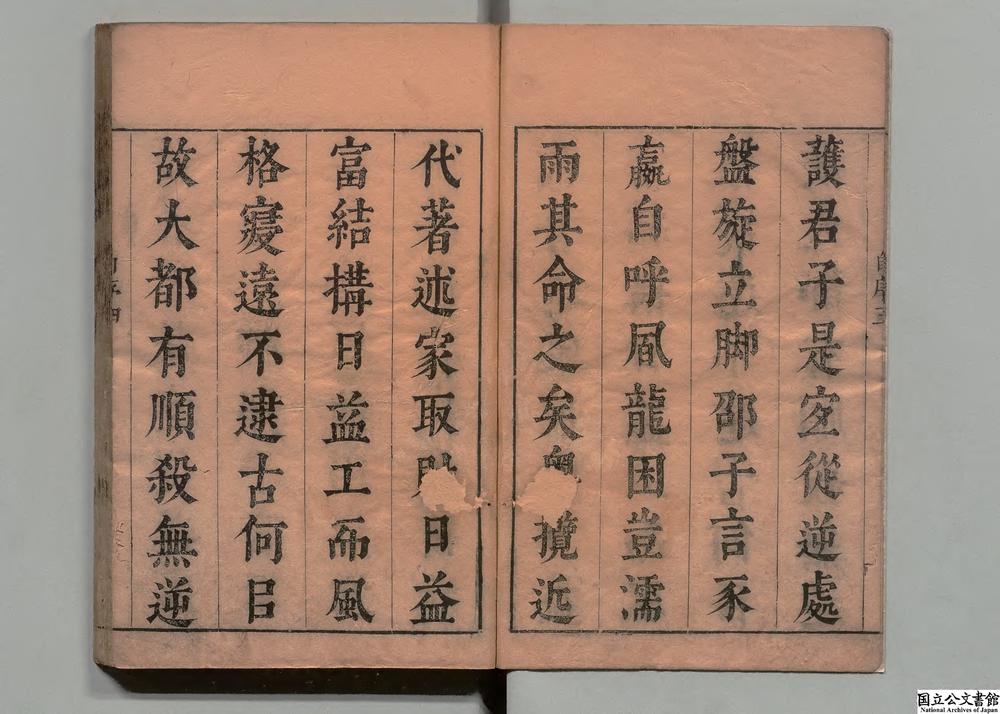 護君子是㝎從逆處
盤旋立脚邵子言豕
嬴自呼風龍困豈濡
雨其命之矣 攬近
代著述家取 日益
富結搆日益工而風
格寖遠不逮古何㠯
故大都有順殺無逆
国立公文書館
National Archives of Japan